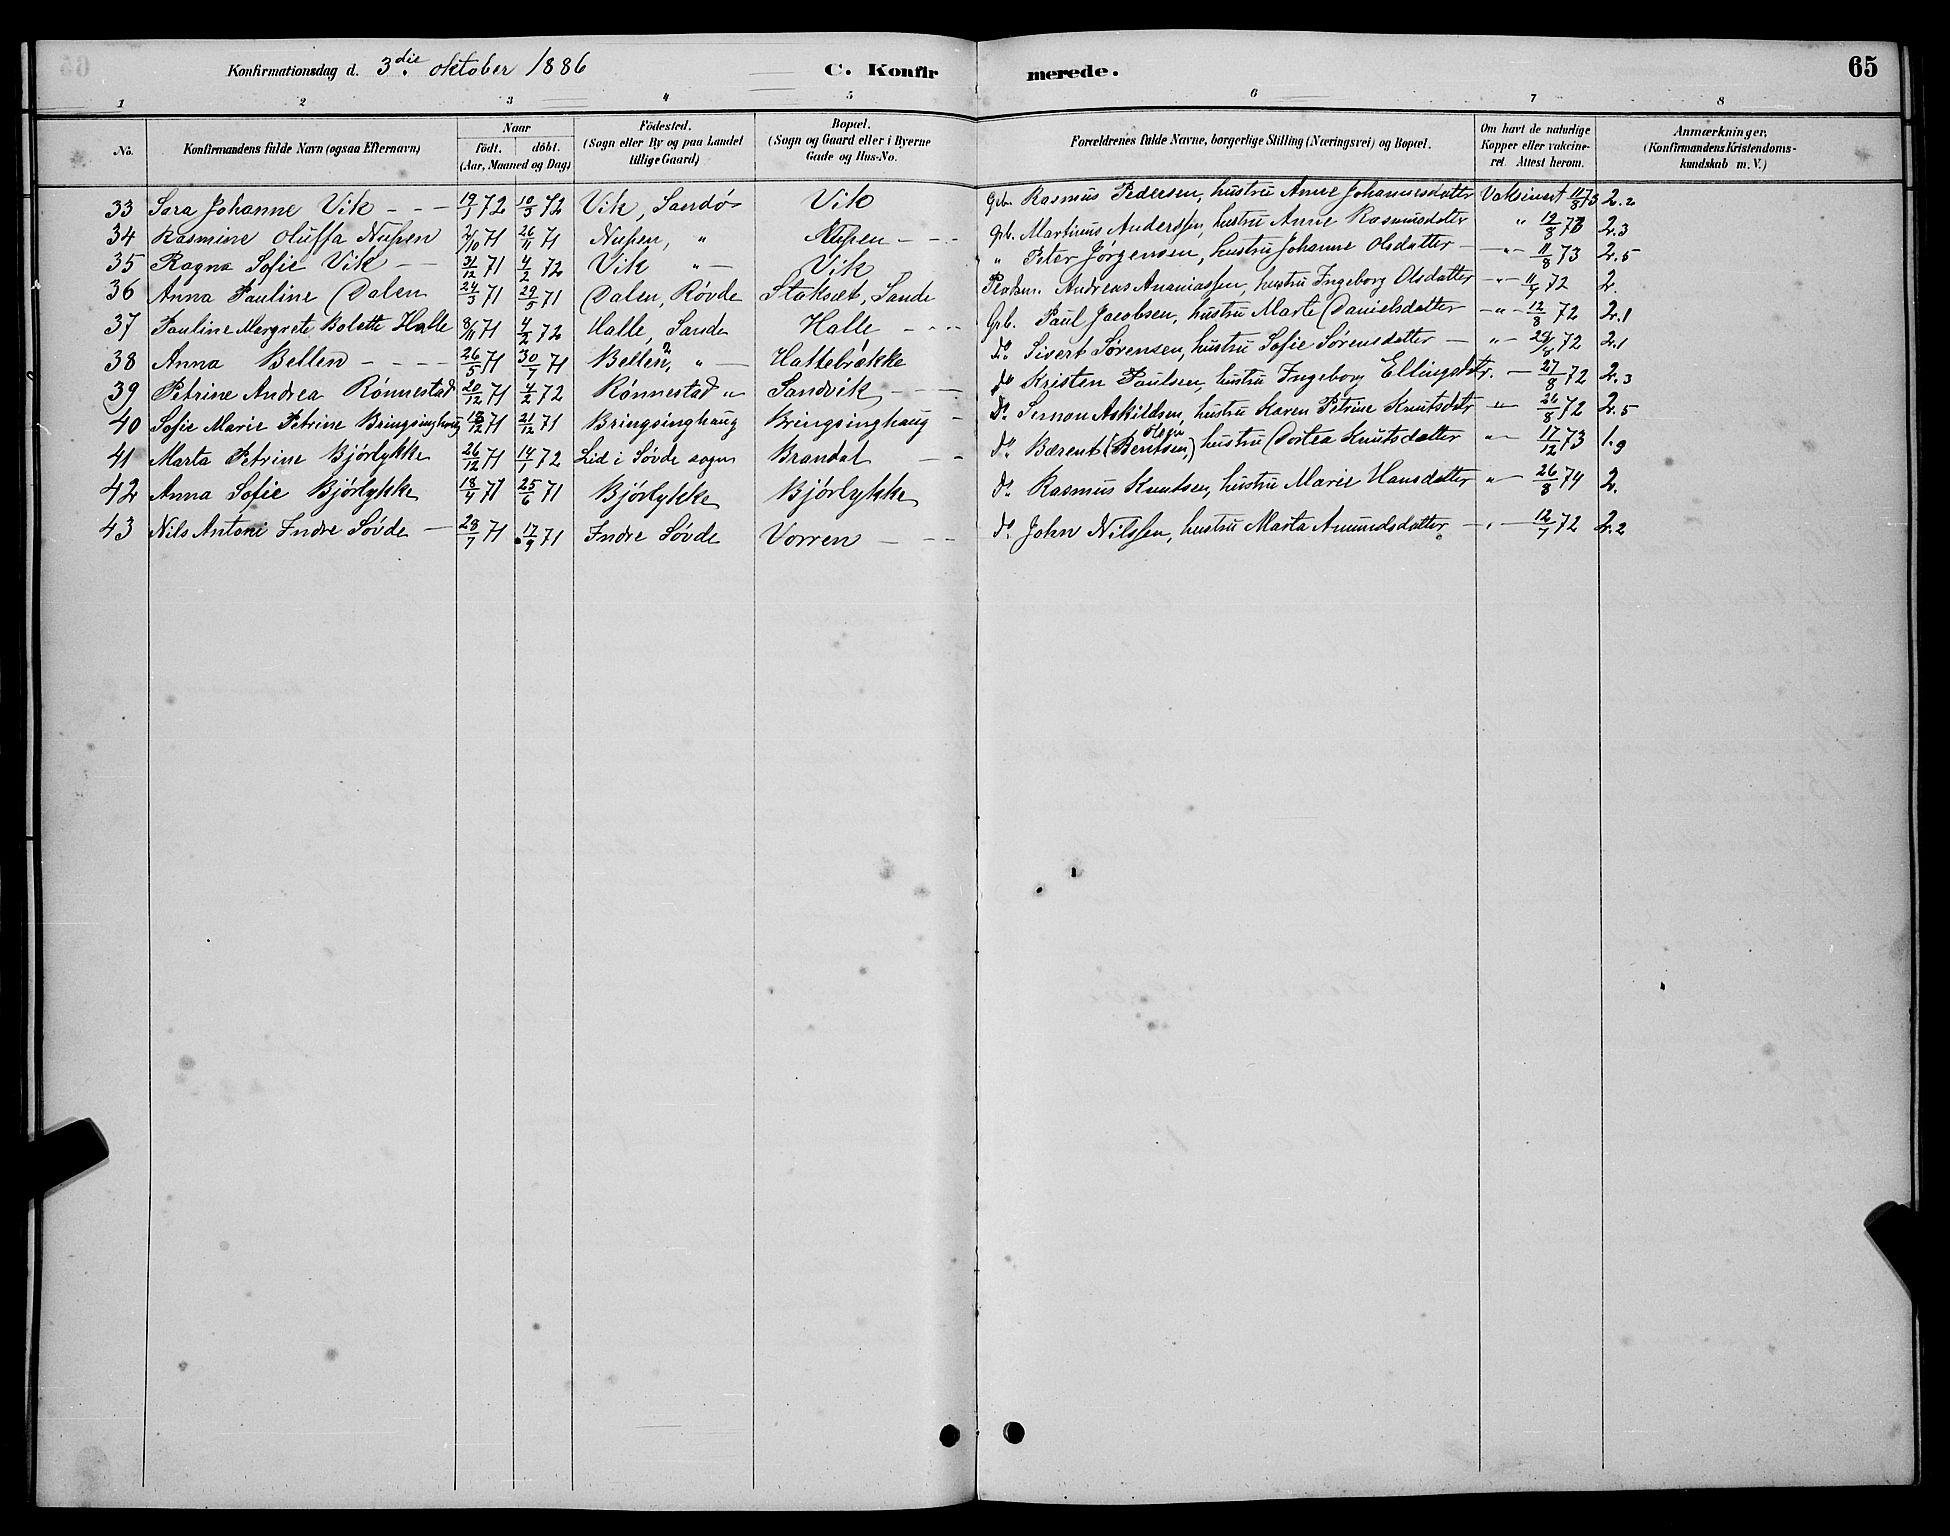 Konfirmationsdag d. 3die oktober 1886 C. Konfirmerede. 65
1 2 3 4 5 6 7 8
No. Konfirmandens fulde Navn (ogsaa Efternavn) Naar födt. döbt. (Aar, Maaned og Dag) Födested. (Sogn eller By og paa Landet tillige Gaard) Bopæl. (Sogn og Gaard eller i Byerne Gade og Hus-No. Forældrenes fulde Navne, borgerlige Stilling (Næringsvei) og Bopæl. Om havt de naturlige Kopper eller vakcineret. Attest herom. Anmærkninger. (Konfirmandens Kristendomskundskab m. V.)
33 Sara Johanne Vik - - - 19/1 72 10/3 72 Vik, Sandø Vik Grb. Rasmus Pedersen, hustru Anne Johannesdatter Vaksineret 11/8 73 2.2
34 Rasmine Oluffa Nupen 2/10 71 26/11 71 Nupen, " Nupen - - - Grb. Martinus Anderssen, hustru Anne Rasmusdatter " 12/8 73 2.3
35 Ragna Sofie Vik - - 31/12 71 4/2 72 Vik " - Vik " Peter Jørgensen, hustru Johanne Olsdatter - - " - 11/8 73 2.5
36 Anna Pauline Dalen 24/3 71 29/5 71 Dalen, Røvde Stoksæt, Sande Andreas Ananiassen, hustru Ingeborg Olsdatter - " - 72 2.
37 Pauline Mergrete Bolette Halle 8/11 71 4/2 72 Halle, Sande Halle - - - Grb. Paul Jacobsen, hustru Marte Danielsdatter - " - 12/8 72 2.1
38 Anna Bellen - - - - 26/5 71 30/7 71 Bellen, " - Hattebrække do Sivert Sørensen, hustru Sofie Sørensdatter - - " - 72 2.1
39 Petrine Andrea Rønnestad 20/12 71 4/2 72 Rønnestad " Sandvik - - - do Kristen Paulsen, hustru Ingeborg Ellingsdtr. - 27/8 72 2.3
40 Sofie Marie Petrine Bringsinghaug 18/12 71 21/12 71 Bringsinghaug Bringsinghaug - do Simon Askildsen, hustru Karen Petrine Knutsdatr " - 26/8 72 2.5
41 Marta Petrine Bjørlykke 26/12 71 14/1 72 Lid i Søvde sogn Brandal - - do Bærent (Bentsen,) hustru Dortea Knutsdatter " - 17/12 73 1.9
42 Anna Sofie Bjørlykke 18/4 71 25/6 71 Bjørlykke Bjørlykke do Rasmus Knutsen, hustru Marie Hansdatter " - 26/8 74 2.
43 Nils Antoni Indre Søvde - 28/7 71 17/9 71 Indre Søvde Vorren - - - do John Nilssen, hustru Marta Amundsdatter - " - 12/7 72 2.2